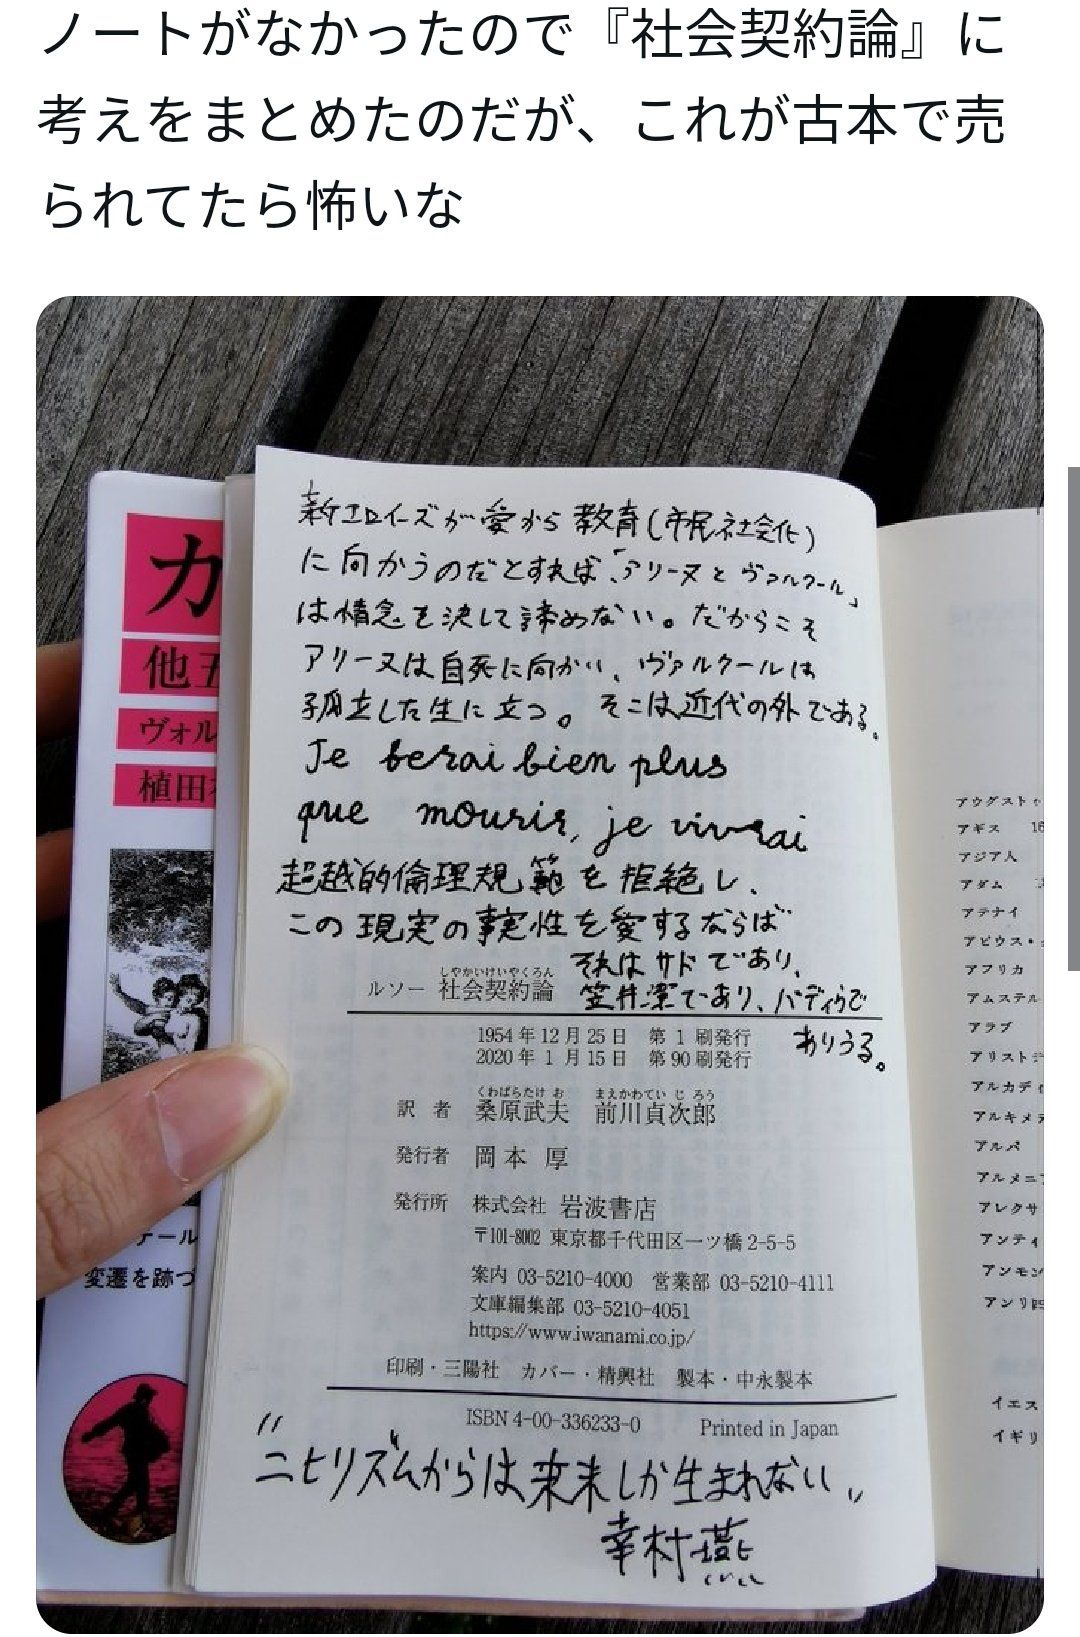 ノートがなかったので『社会契約論』に
考えをまとめたのだが、これが古本で売
られてたら怖いな
新エロイーズが愛から教育(市民社会化)
に向かうのだとすれば、「アリーヌとヴァルクール」
は情念を決して諦めない。だからこそ
アリーヌは自死に向かい、ヴァルクールは
孤立した生に立つ。そこは近代の外である。
Je berai bien plus
que mourir, je vivrai
超越的倫理規範を拒絶し、
この現実の事実性を愛するならば
それはサドであり、
笠井潔であり、バディウで
ありうる。
しやかいけいやくろん
ルソー 社会契約論
1954年12月25日 第1刷発行
2020年1月15日 第90刷発行
くわばらたけお まえかわていじろう
訳者 桑原武夫 前川貞次郎
発行者 岡本厚
発行所 株式会社 岩波書店
〒101-8002 東京都千代田区一ツ橋2-5-5
案内 03-5210-4000 営業部 03-5210-4111
文庫編集部 03-5210-4051
https://www.iwanami.co.jp/
印刷・三陽社 カバー・精興社 製本・中永製本
ISBN 4-00-336233-0 Printed in Japan
"ニヒリズムからは未来しか生まれない"
幸村燕
カ
他五
ヴォル
植田
テール
変遷を跡づ
アウグスト
アギス 16
アジア人
アダム
アテナイ
アピウス・
アフリカ
アムステル
アラブ
アリスト
アルカディ
アルキメ
アルバ
アルメニ
アレクサ
アンティ
アンモン
アンリ四
イエス
イギリ